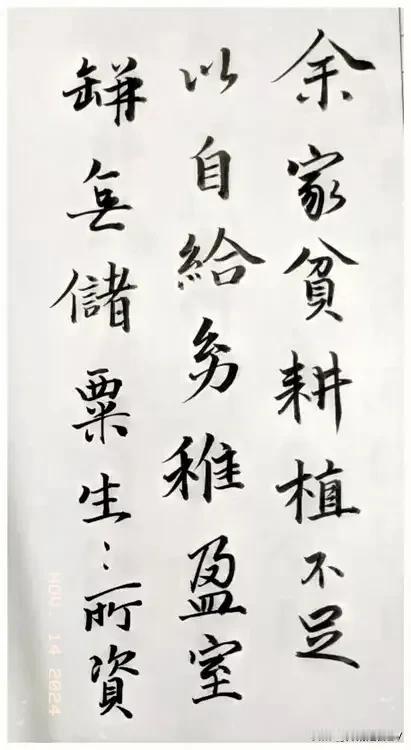 余家貧耕植不足
以自給幼稚盈室
缾無儲粟生〻所資
NOV. 14 2024